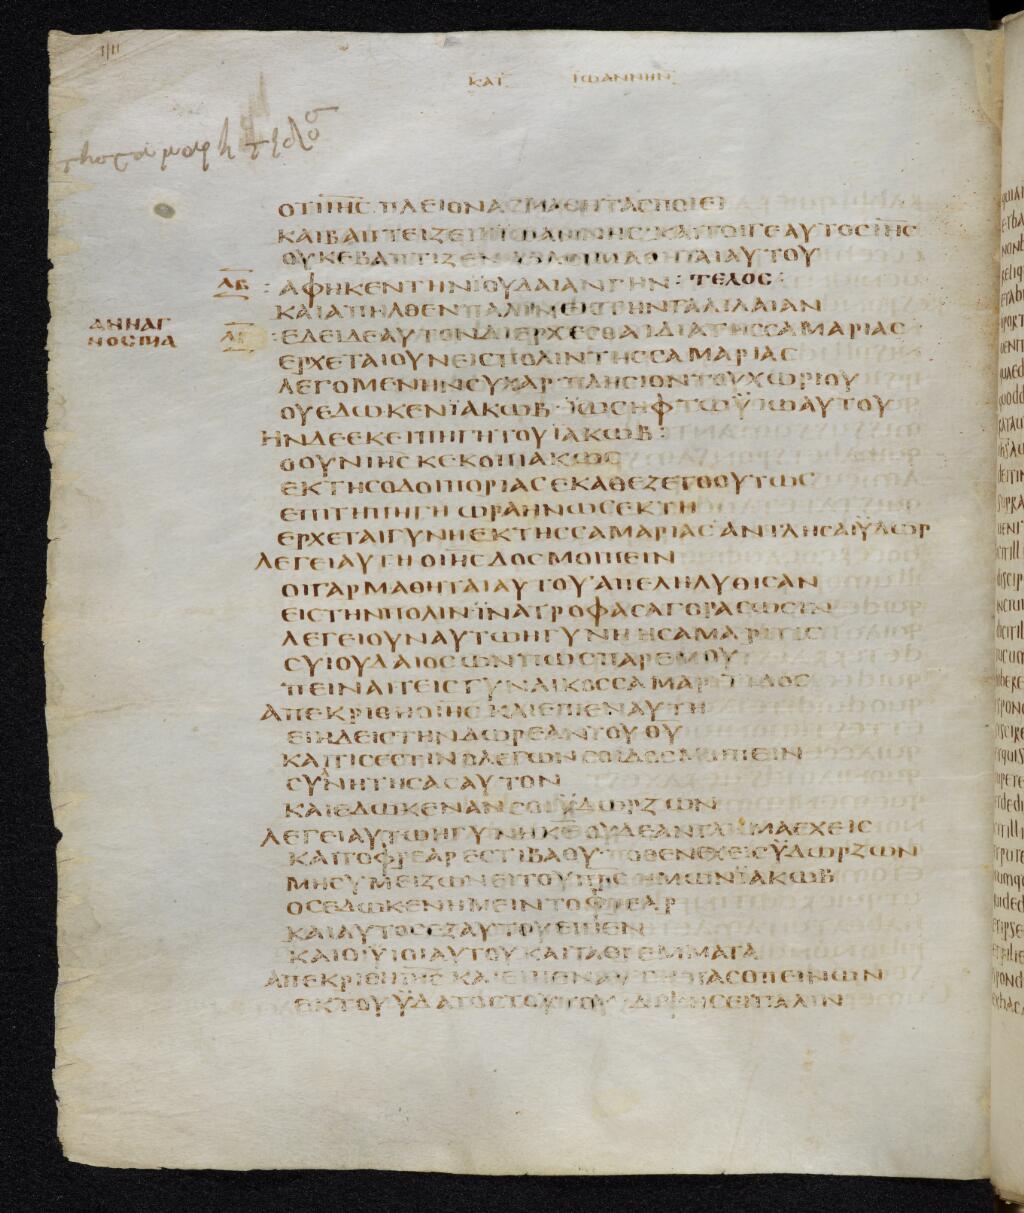 ΚΑΤ ΙΩΑΝΝΗΝ
ΟΤΙ ΙΗΣ ΠΛΕΙΟΝΑΣ ΜΑΘΗΤΑΣ ΠΟΙΕΙ
ΚΑΙ ΒΑΠΤΕΙΖΕΙ Η ΙΩΑΝΝΗΣ ΚΑΙΤΟΙΓΕ ΑΥΤΟΣ ΙΗΣ
ΟΥΚ ΕΒΑΠΤΙΖΕΝ ΑΛΛ ΟΙ ΜΑΘΗΤΑΙ ΑΥΤΟΥ
ΛΒ : ΑΦΗΚΕΝ ΤΗΝ ΙΟΥΔΑΙΑΝ ΓΗΝ : ΤΕΛΟΣ :
ΚΑΙ ΑΠΗΛΘΕΝ ΠΑΛΙΝ ΕΙΣ ΤΗΝ ΓΑΛΙΛΑΙΑΝ
ΑΝΝΑΓΝΟΣΜΑ ΛΓ : ΕΔΕΙ ΔΕ ΑΥΤΟΝ ΔΙΕΡΧΕΣΘΑΙ ΔΙΑ ΤΗΣ ΣΑΜΑΡΙΑΣ
ΕΡΧΕΤΑΙ ΟΥΝ ΕΙΣ ΠΟΛΙΝ ΤΗΣ ΣΑΜΑΡΙΑΣ
ΛΕΓΟΜΕΝΗΝ ΣΥΧΑΡ ΠΛΗΣΙΟΝ ΤΟΥ ΧΩΡΙΟΥ
ΟΥ ΕΔΩΚΕΝ ΪΑΚΩΒ ΪΩΣΗΦ ΤΩ ΫΙΩ ΑΥΤΟΥ
ΗΝ ΔΕ ΕΚΕΙ ΠΗΓΗ ΤΟΥ ΙΑΚΩΒ :
Ο ΟΥΝ ΙΗΣ ΚΕΚΟΠΙΑΚΩΣ
ΕΚ ΤΗΣ ΟΔΟΙΠΟΡΙΑΣ ΕΚΑΘΕΖΕΤΟ ΟΥΤΩΣ
ΕΠΙ ΤΗ ΠΗΓΗ ΩΡΑ ΗΝ ΩΣ ΕΚΤΗ
ΕΡΧΕΤΑΙ ΓΥΝΗ ΕΚ ΤΗΣ ΣΑΜΑΡΙΑΣ ΑΝΤΛΗΣΑΙ ΫΔΩΡ
ΛΕΓΕΙ ΑΥΤΗ Ο ΙΗΣ ΔΟΣ ΜΟΙ ΠΕΙΝ
ΟΙ ΓΑΡ ΜΑΘΗΤΑΙ ΑΥΤΟΥ ΑΠΕΛΗΛΥΘΙΣΑΝ
ΕΙΣ ΤΗΝ ΠΟΛΙΝ ΪΝΑ ΤΡΟΦΑΣ ΑΓΟΡΑΣΩΣΙΝ
ΛΕΓΕΙ ΟΥΝ ΑΥΤΩ Η ΓΥΝΗ Η ΣΑΜΑΡΙΤΙΣ
ΣΥ ΙΟΥΔΑΙΟΣ ΩΝ ΠΩΣ ΠΑΡ ΕΜΟΥ
ΠΕΙΝ ΑΙΤΕΙΣ ΓΥΝΑΙΚΟΣ ΣΑΜΑΡΙΤΙΔΟΣ
ΑΠΕΚΡΙΘΗ Ο ΙΗΣ ΚΑΙ ΕΙΠΕΝ ΑΥΤΗ
ΕΙ ΗΔΕΙΣ ΤΗΝ ΔΩΡΕΑΝ ΤΟΥ ΘΥ
ΚΑΙ ΤΙΣ ΕΣΤΙΝ Ο ΛΕΓΩΝ ΣΟΙ ΔΟΣ ΜΟΙ ΠΙΕΙΝ
ΣΥ ΑΝ ΗΤΗΣΑΣ ΑΥΤΟΝ
ΚΑΙ ΕΔΩΚΕΝ ΑΝ ΣΟΙ ΫΔΩΡ ΖΩΝ
ΛΕΓΕΙ ΑΥΤΩ Η ΓΥΝΗ ΚΕ ΟΥΔΕ ΑΝΤΛΗΜΑ ΕΧΕΙΣ
ΚΑΙ ΤΟ ΦΡΕΑΡ ΕΣΤΙ ΒΑΘΥ ΠΟΘΕΝ ΕΧΕΙΣ ΫΔΩΡ ΖΩΝ
ΜΗ ΣΥ ΜΕΙΖΩΝ ΕΙ ΤΟΥ ΠΡΣ ΗΜΩΝ ΪΑΚΩΒ
ΟΣ ΕΔΩΚΕΝ ΗΜΕΙΝ ΤΟ ΦΡΕΑΡ
ΚΑΙ ΑΥΤΟΣ ΕΞ ΑΥΤΟΥ ΕΠΙΕΝ
ΚΑΙ ΟΙ ΫΙΟΙ ΑΥΤΟΥ ΚΑΙ ΤΑ ΘΡΕΜΜΑΤΑ
ΑΠΕΚΡΙΘΗ ΙΗΣ ΚΑΙ ΕΙΠΕΝ ΑΥΤΗ ΠΑΣ Ο ΠΕΙΝΩΝ
ΕΚ ΤΟΥ ΫΔΑΤΟΣ ΤΟΥΤΟΥ ΔΙΨΗΣΕΙ ΠΑΛΙΝ